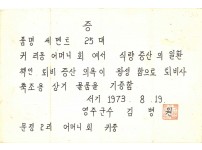 증
품명 쎄멘트 25 대
귀 리운 어머니회 에서 식량 증산의 일환
책인 퇴비 증산 의욕이 왕성 함으로 퇴비사
축조용 상기 물품을 기증함
서기 1973. 8. 19.
영주군수 김 정
문정 2리 어머니회 귀중